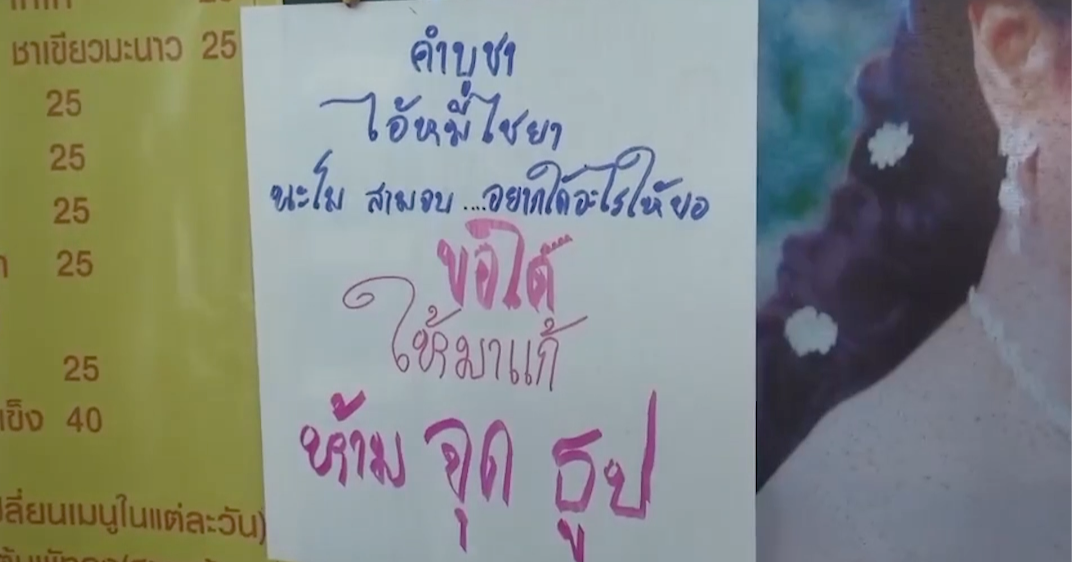 ชาเขียวมะนาว 25
25
25
25
25
25
แข็ง 40
ปลี่ยนเมนูในแต่ละวัน)
คำบูชา
ไอ้หมีไชยา
นะโม สามจบ....อยากได้อะไรให้ขอ
ขอได้
ให้มาแก้
ห้าม จุด ธูป